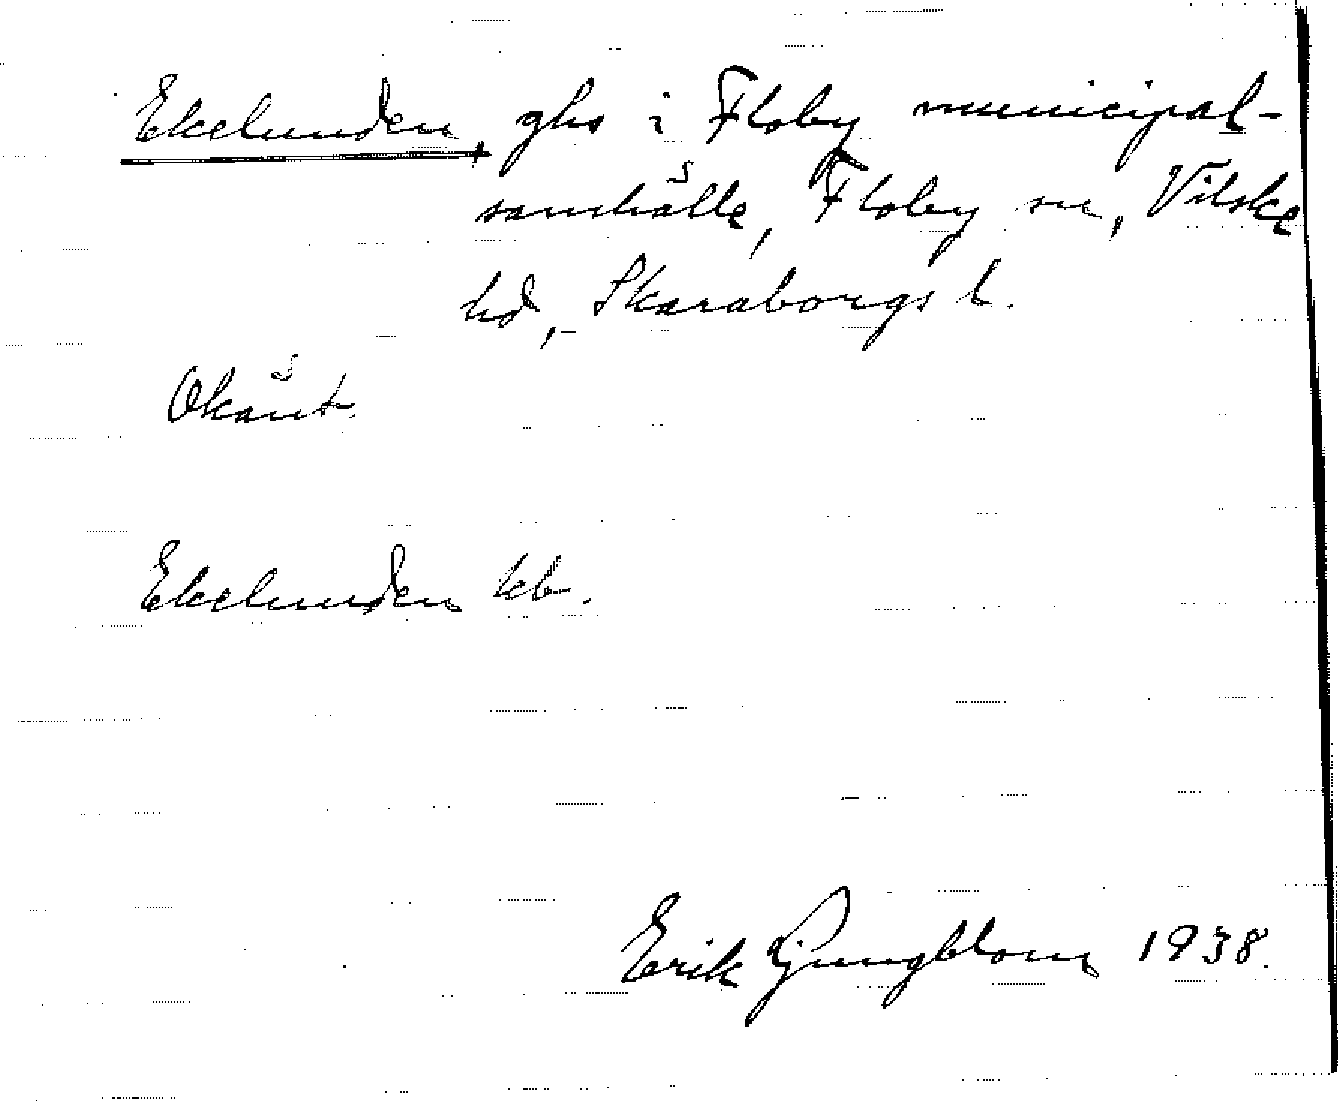 Ekelunden, ghs i Floby municipal-
samhälle, Floby sn, Vilske
hd, Skaraborgs l.
Okänt.
Ekelunden kb.
Erik Ljungblom 1938.